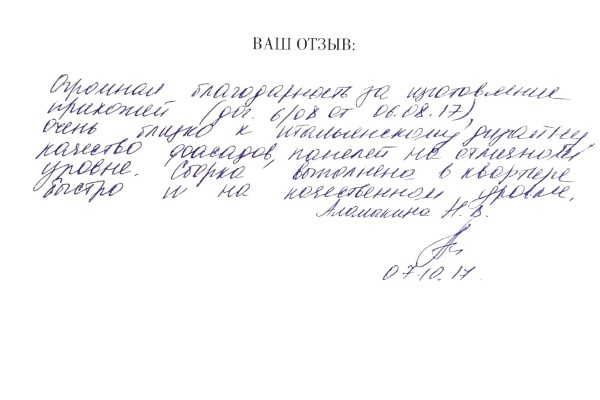 ВАШ ОТЗЫВ:
Огромная благодарность за изготовление
прихожей (дог. 6/08 от 06.08.17),
очень близко к итальянскому дизайну,
качество фасадов, панелей на отличном
уровне. Сборка выполнена в квартире
быстро и на качественном уровне.
Аламыкина Н.В.
07.10.17.